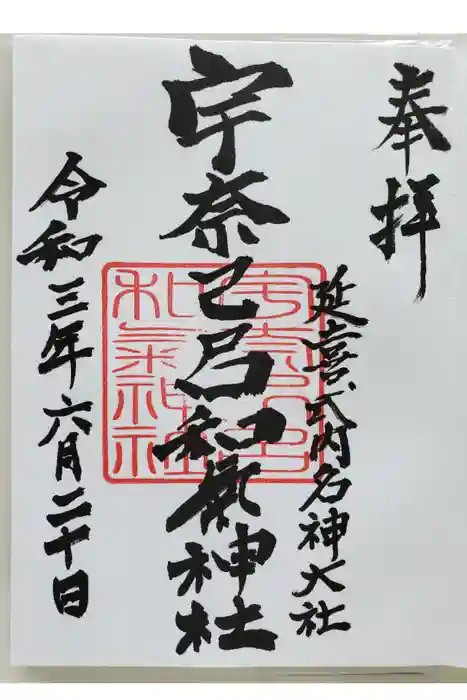 奉拝
延喜式内名神大社
宇奈己呂和気神社
令和三年六月二十日